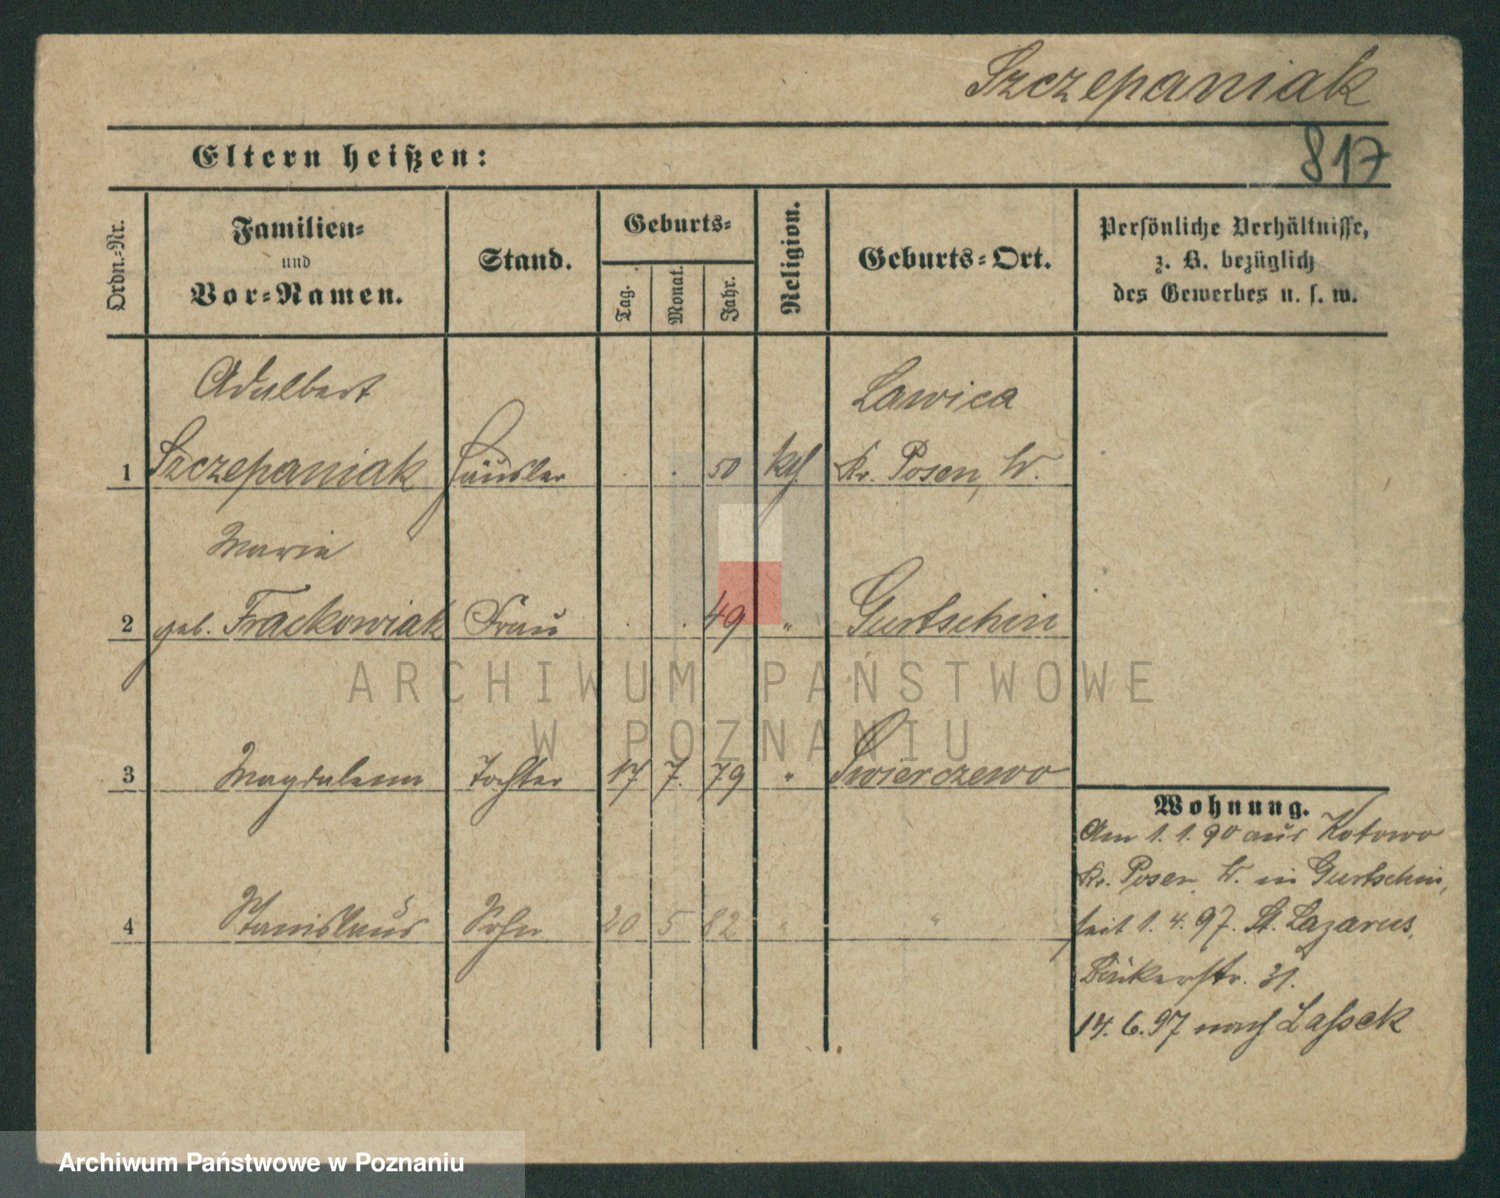 Szczepaniak
817
Eltern heißen:
Ordn.-Nr.
Familien-
und
Vor-Namen.
Stand.
Geburts-
Tag.
Monat.
Jahr.
Religion.
Geburts-Ort.
Persönliche Verhältnisse,
z. B. bezüglich
des Gewerbes u. s. w.
Adalbert
Lawica
1 Szczepaniak Häusler . . 50 kth. Kr. Posen, W.
Maria
2 geb. Frackowiak Frau . . 49 " Gurtschin
3 Magdalena Tochter 17 7. 79 " Swierczewo
4 Stanislaus Sohn 20 5 82 " "
Wohnung.
Am 1. 1. 90 aus Kotowo
Kr. Posen W. in Gurtschin,
seit 1. 4. 97. St. Lazarus,
Bäckerstr. 31.
14. 6. 97 nach Lassek
ARCHIWUM PAŃSTWOWE
W POZNANIU
Archiwum Państwowe w Poznaniu